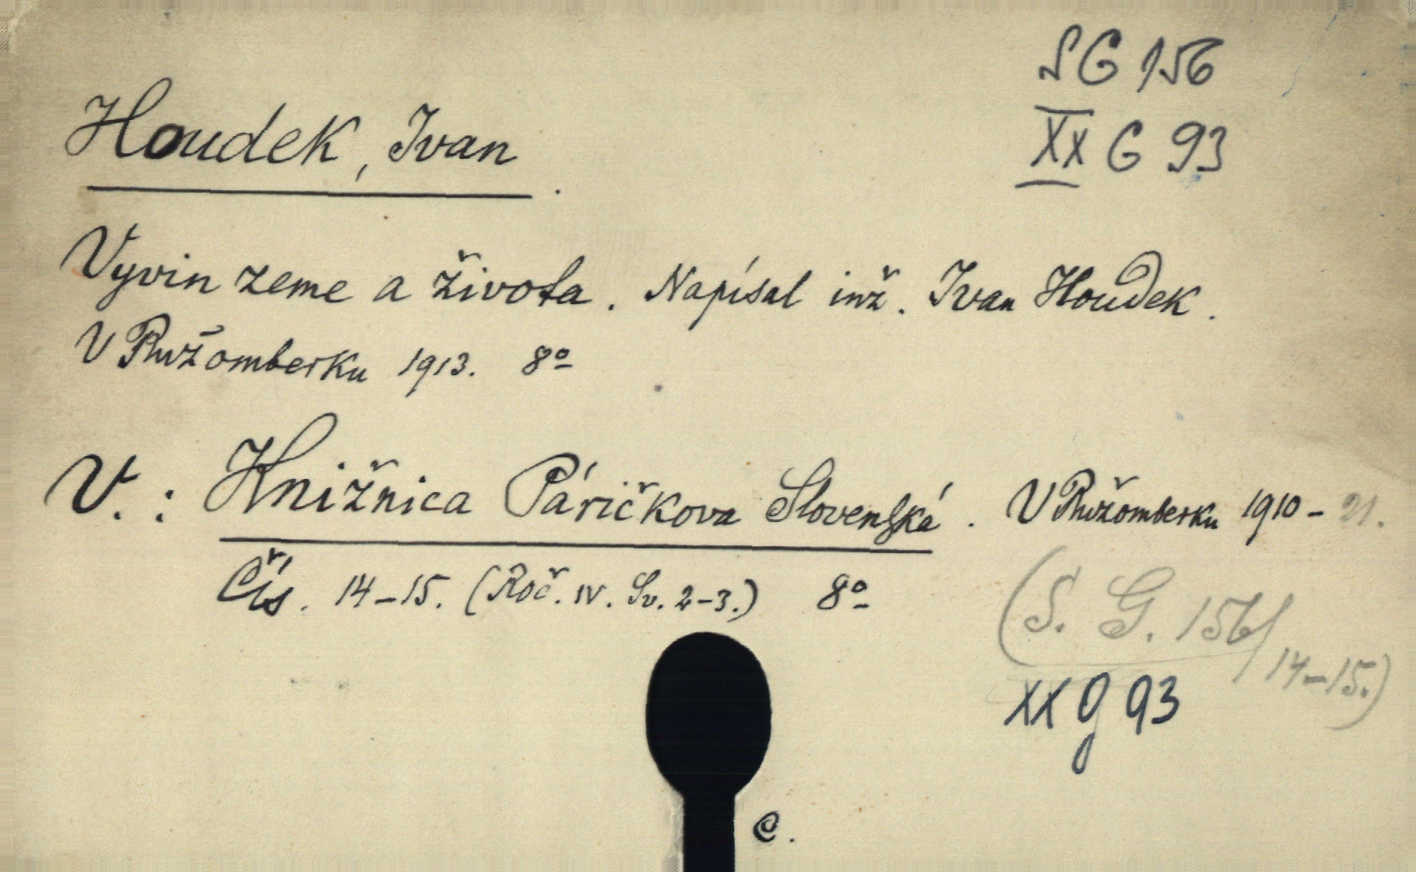 SG 156
XX G 93
Houdek, Ivan.
Vyvin zeme a života. Napísal inž. Ivan Houdek.
V Ružomberku 1913. 8º
V.: Knižnica Páričkova Slovenská. V Ružomberku 1910-21.
Čís. 14-15. (Roč. IV. Sv. 2-3.) 8º
(S. G. 156/14-15.)
XX g 93
C.